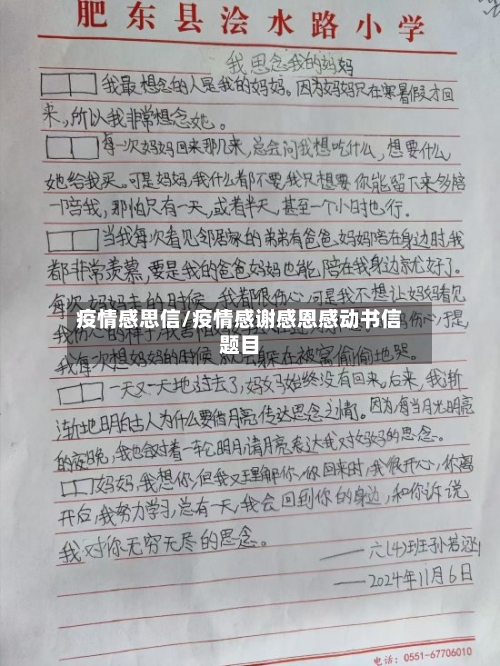 肥东县浍水路小学
我思念我的妈妈
我最想念的人是我的妈妈。因为妈妈只在寒暑假才回
来,所以我非常想念她。
每一次妈妈回来那几天,总会问我想吃什么,想要什么,
她给我买。可是妈妈,我什么都不要,我只想要你能留下来多陪
一陪我,那怕只有一天,或者半天,甚至一个小时也行。
当我每次看见邻居家的弟弟有爸爸妈妈陪在身边时,我
都非常羡慕,要是我的爸爸妈妈也能陪在我身边就尤好了。
每次妈妈走的时候,我都很伤心,可是我不想让妈妈看见
疫情感思信/疫情感谢感恩感动书信
题目
我每次想妈妈的时候 躲在被窝偷偷地哭。
一天又一天地过去了,妈妈始终没有回来,后来,我渐
渐地明白古人为什么要借月亮传达思念之情。因为,每当月光明亮
的夜晚,我也会对着一轮明月请月亮表达我对妈妈的思念。
妈妈,我想你,但我又理解你,你回来时,我很开心,你离
开后,我努力学习,总有一天,我会回到你的身边,和你诉说
我对你无穷无尽的思念。
——六(4)班孙若涵
——2024年11月6日
电话:0551-67706010